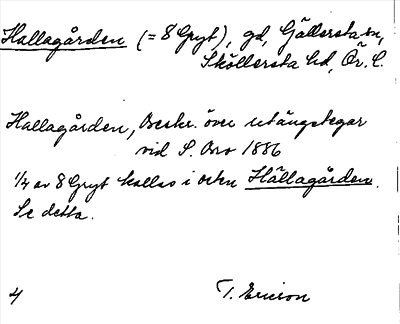 Hallagården (= 8 Gryt), gd, Gällersta sn,
Sköllersta hd, Ör. l.
Hallagården, Beskr. över utängstegar
vid S. Bro 1886
1/4 av 8 Gryt kallas i orten Hällagården.
Se detta.
4 T. Ericson